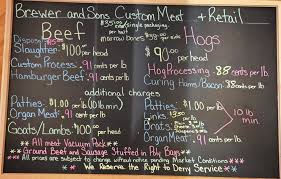 Brewer and Sons Custom Meat + Retail
Beef
Hogs
Slaughter: $100 per head
$90.00 per head
Custom Process .91 cents per lb
Hamburger Beef .91 cents per lb
Hog Processing .88 cents per lb
Curing Hams/Bacon .88 cents per lb
additional charges
Patties: $1.00 per lb (10 lb min)
Organ Meat: .91 cents per lb
Goats/Lambs: $100 per head
Patties: $1.00 per lb
Links
Brats:
Organ Meat: .91 cents per lb
10 lb min
** All meat Vacuum Pack **
** Ground Beef and Sausage Stuffed in Poly Bags **
** All prices are subject to change without notice pending Market Conditions ***
** We Reserve the Right to Deny Service **